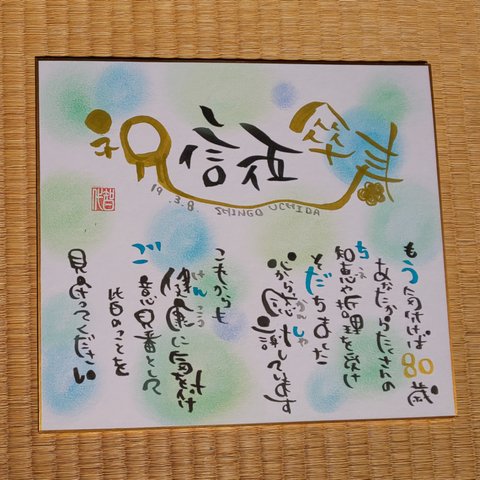 祝
信
寿
19.3.8.
SHINGO UCHIDA
もう気付けば80歳
あなたからたくさんの
そだちました
心から感謝しています
これからも
健康に気を付け
ご意見番として
のことを
見守ってください